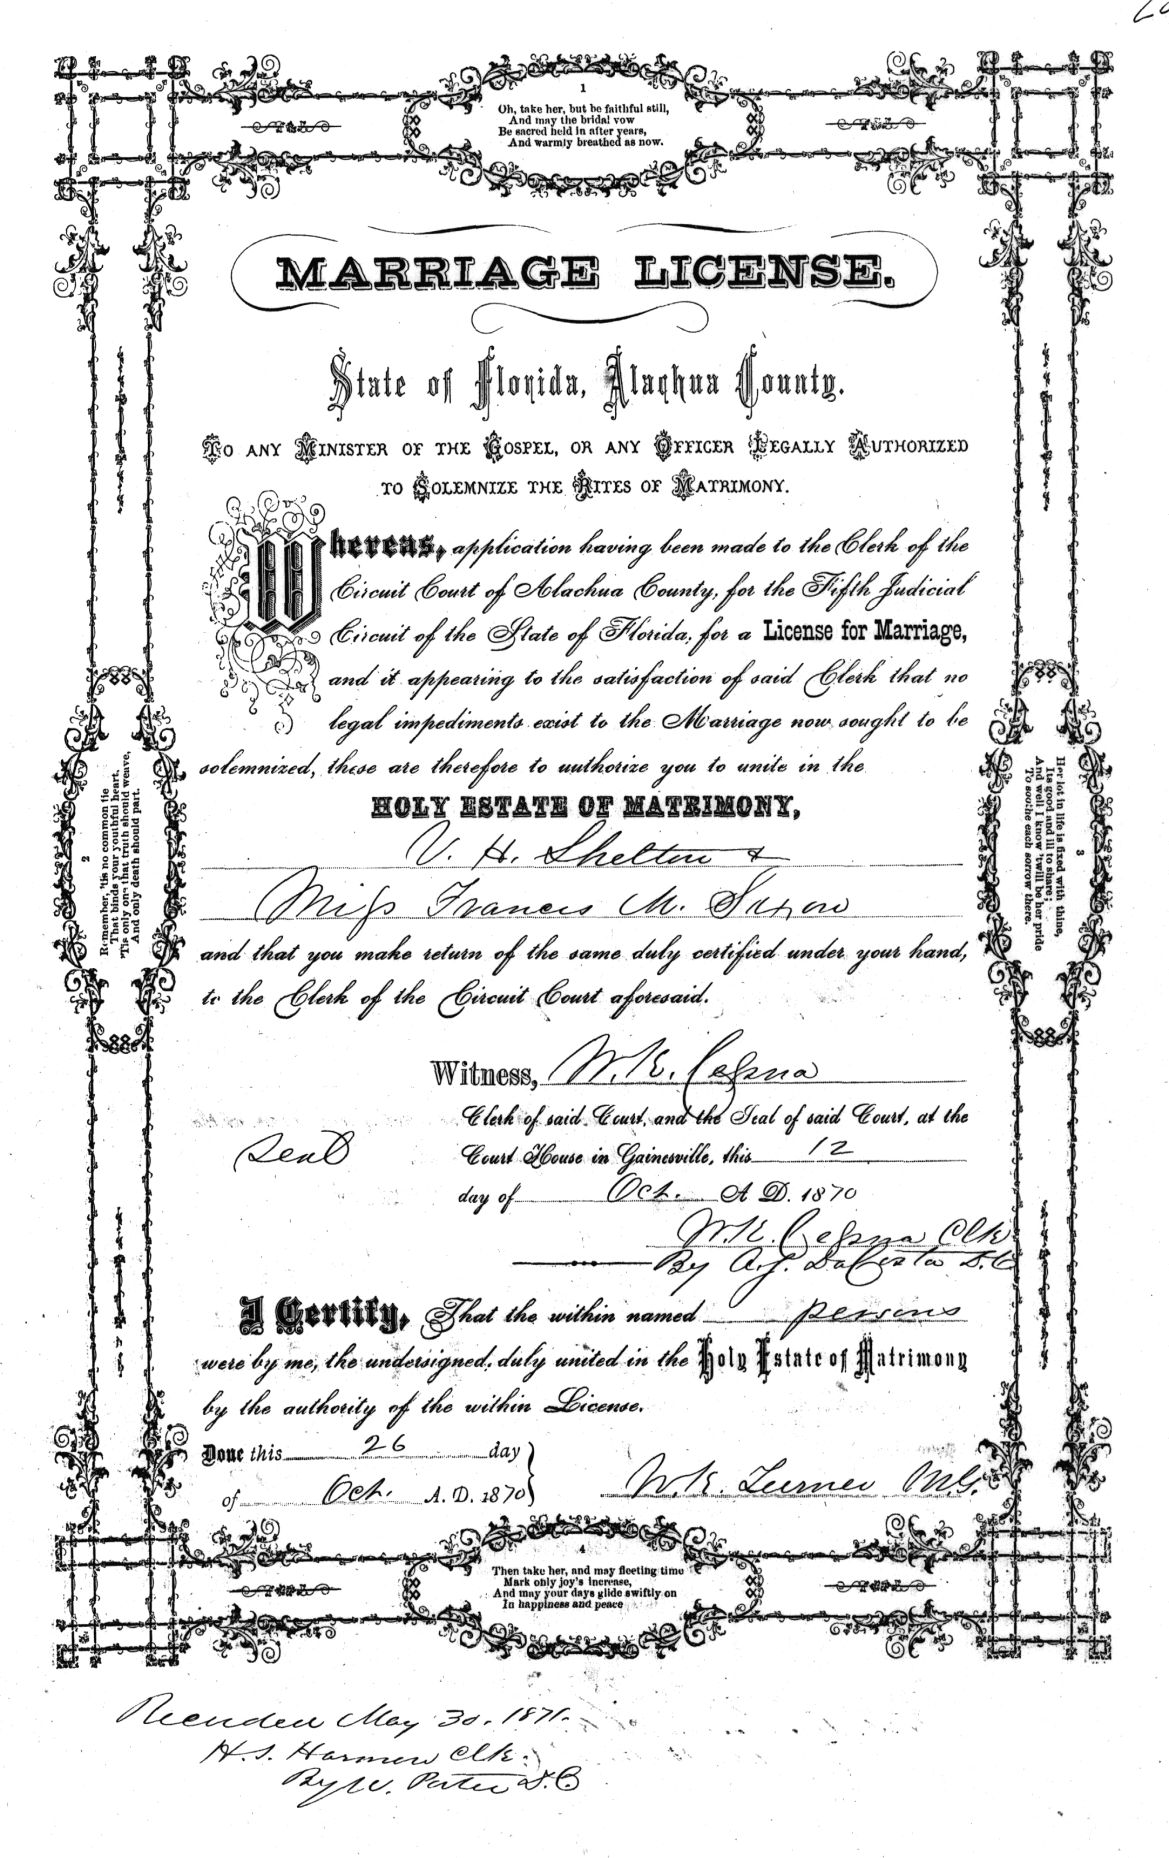 1
Oh, take her, but be faithful still,
And may the bridal vow
Be sacred held in after years,
And warmly breathed as now.
MARRIAGE LICENSE.
State of Florida, Alachua County.
To any Minister of the Gospel, or any Officer Legally Authorized
to Solemnize the Rites of Matrimony.
Whereas, application having been made to the Clerk of the
Circuit Court of Alachua County, for the Fifth Judicial
Circuit of the State of Florida, for a License for Marriage,
and it appearing to the satisfaction of said Clerk that no
legal impediments exist to the Marriage now sought to be
solemnized, these are therefore to authorize you to unite in the
HOLY ESTATE OF MATRIMONY,
V. H. Shelton &
Miss Francis M. Saxon
and that you make return of the same duly certified under your hand,
to the Clerk of the Circuit Court aforesaid.
Witness, W. K. Cessna
Clerk of said Court, and the Seal of said Court, at the
Seal
Court House in Gainesville, this 12
day of Oct. A D. 1870
W. K. Cessna Clk
By A. J. DaCosta D.C
I Certify, That the within named persons
were by me, the undersigned, duly united in the Holy Estate of Matrimony
by the authority of the within License.
Done this 26 day
of Oct. A. D. 1870
W. K. Turner M.G.
2
Remember, 'tis no common tie
That binds your youthful heart,
'Tis only one that truth should weave,
And only death should part.
3
Her lot in life is fixed with thine,
Its good and ill to share;
And well I know 'twill be her pride
To soothe each sorrow there.
4
Then take her, and may fleeting time
Mark only joy's increase,
And may your days glide swiftly on
In happiness and peace
Recorded May 30. 1871.
H. S. Harmon Clk.
By W. Porter D.C